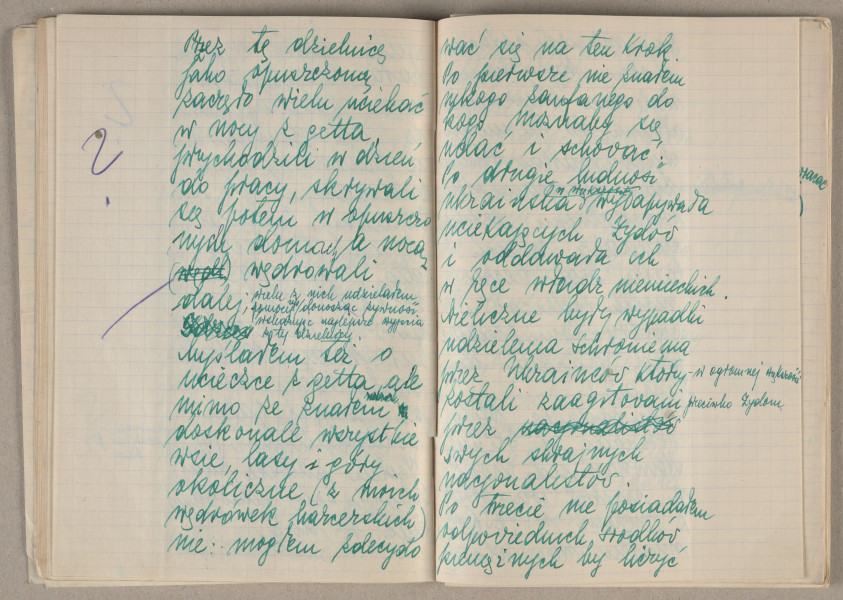 Przez tę dzielnicę
jako opuszczoną
zaczęło wielu uciekać
w nocy z getta,
przychodzili w dzień
do pracy, skrywali
się potem w opuszczo
nych domach, a nocą
wędrowali
dalej, wielu z nich udzielałem
pomocy donosząc żywność
i wskazując najlepsze wyjścia
z tej dzielnicy
Myślałem też o
ucieczce z getta, ale
mimo że znałem
doskonale wszystkie
wsie, lasy i góry
okoliczne (z moich
wędrówek harcerskich)
nie mogłem zdecydo
wać się na ten krok.
Po pierwsze nie znałem
nikogo zaufanego do
kogo możnaby się
udać i schować.
Po drugie ludność
ukraińska w większości wyłapywała
uciekających Żydów
i oddawała ich
w ręce władz niemieckich.
Nieliczne były wypadki
udzielenia schronienia
przez Ukraińców którzy w ogromnej większości
zostali zaagitowani przeciwko Żydom
przez nacjonalistów
swych skrajnych
nacjonalistów.
Po trzecie nie posiadałem
odpowiednich środków
pieniężnych by liczyć
?